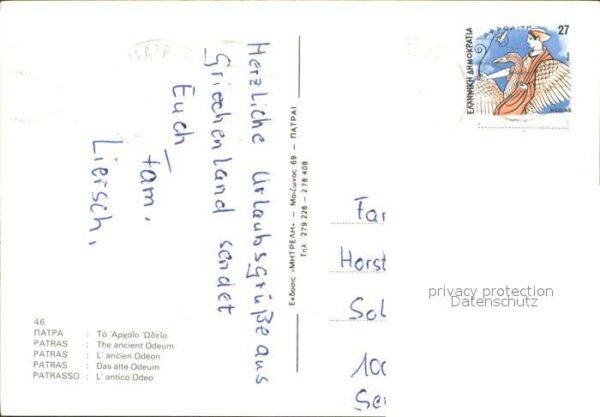 Herzliche Urlaubsgrüße aus
Griechenland sendet
Euch
Fam.
Liersch,
46
ΠΑΤΡΑ : Τό Ἀρχαῖο Ὠδεῖο
PATRAS : The ancient Odeum
PATRAS : L' ancien Odéon
PATRAS : Das alte Odeum
PATRASSO : L' antico Odeo
Εκδοσις «ΜΗΤΡΕΛΗ» – Μαιζωνος 69 – ΠΑΤΡΑΙ
Τηλ 279 226 - 278 408
27
ΑΦΡΟΔΙΤΗ
ΕΛΛΗΝΙΚΗ ΔΗΜΟΚΡΑΤΙΑ
HELLAS
Fa
Horst
Sc
100
Se
privacy protection
Datenschutz